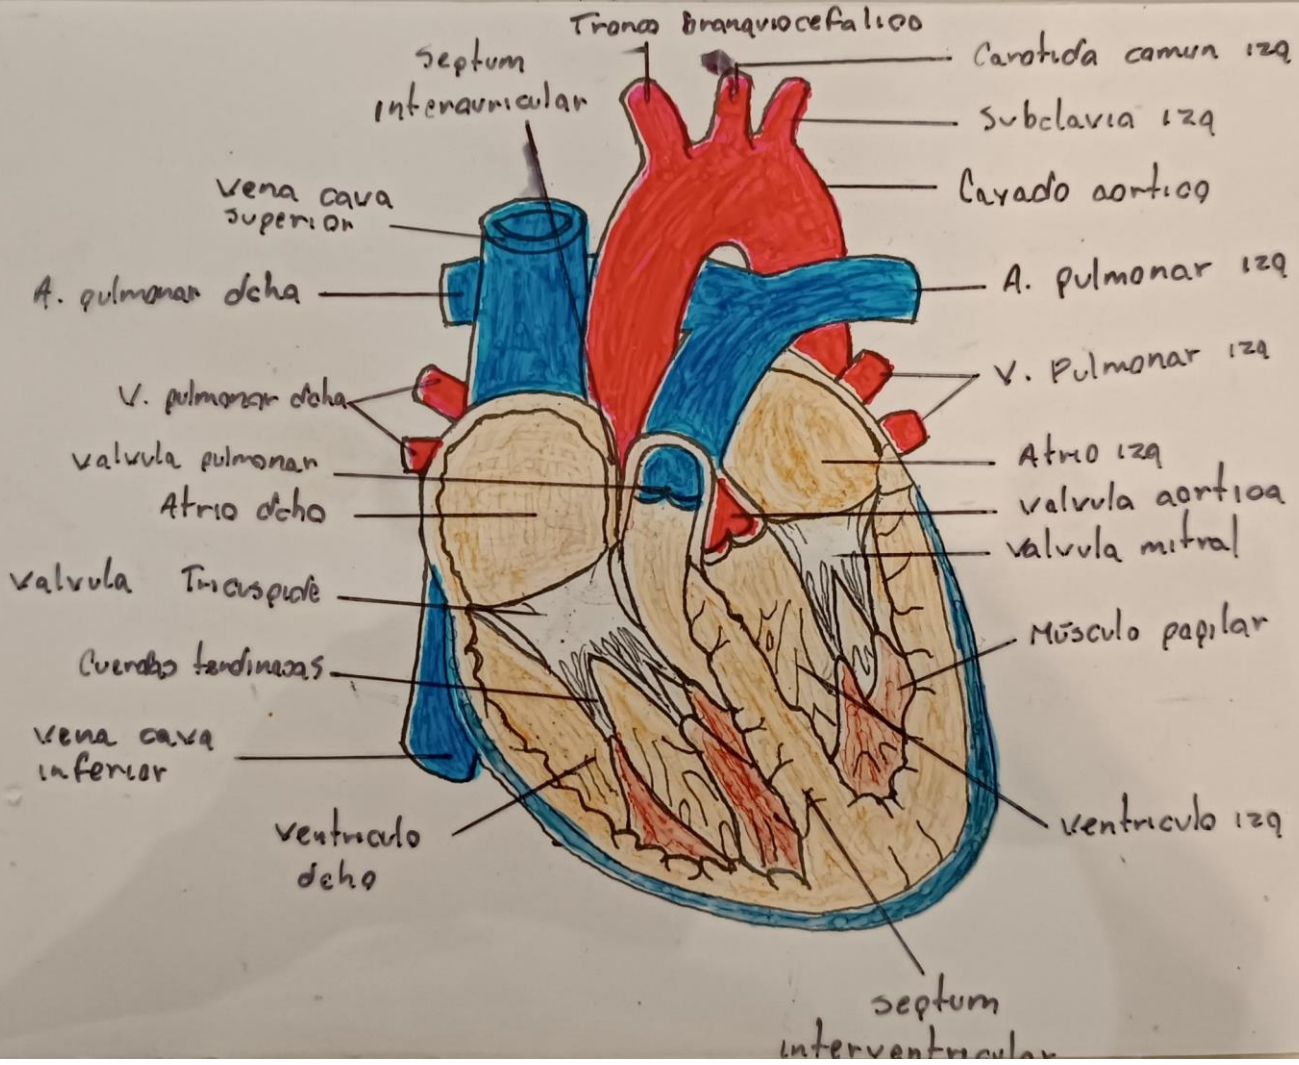 Tronco branquiocefalico
septum
interauricular
Carotida comun izq
Subclavia izq
Cayado aortico
vena cava
superior
A. pulmonar dcha
A. pulmonar izq
V. pulmonar dcha
V. Pulmonar izq
valvula pulmonar
Atrio izq
Atrio dcho
valvula aortica
valvula mitral
valvula Tricuspide
Músculo papilar
Cuerdas tendinosas
vena cava
inferior
ventriculo
dcho
ventriculo izq
septum
interventricular